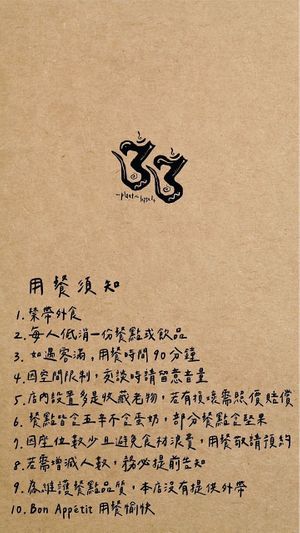 33
plant-based
用餐須知
1. 禁帶外食
2. 每人低消一份餐點或飲品
3. 如遇客滿，用餐時間90分鐘
4. 因空間限制，交談時請留意音量
5. 店內設置多是收藏老物，若有損壞需照價賠償
6. 餐點皆含五辛不含蛋奶，部分餐點含堅果
7. 因座位較少且避免食材浪費，用餐敬請預約
8. 若需增減人數，務必提前告知
9. 為維護餐點品質，本店沒有提供外帶
10. Bon Appétit 用餐愉快